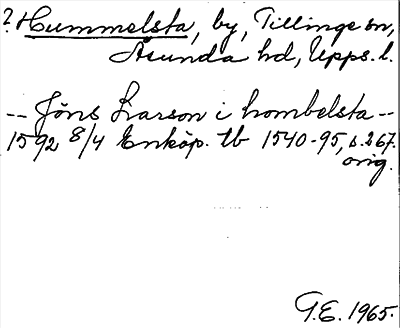 ? Hummelsta, by, Tillinge sn,
Åsunda hd, Upps. l.
-- Jöns Larson i hombelsta --
1592 8/4 Enköp. tb 1540-95, s. 267.
orig.
G.E. 1965.